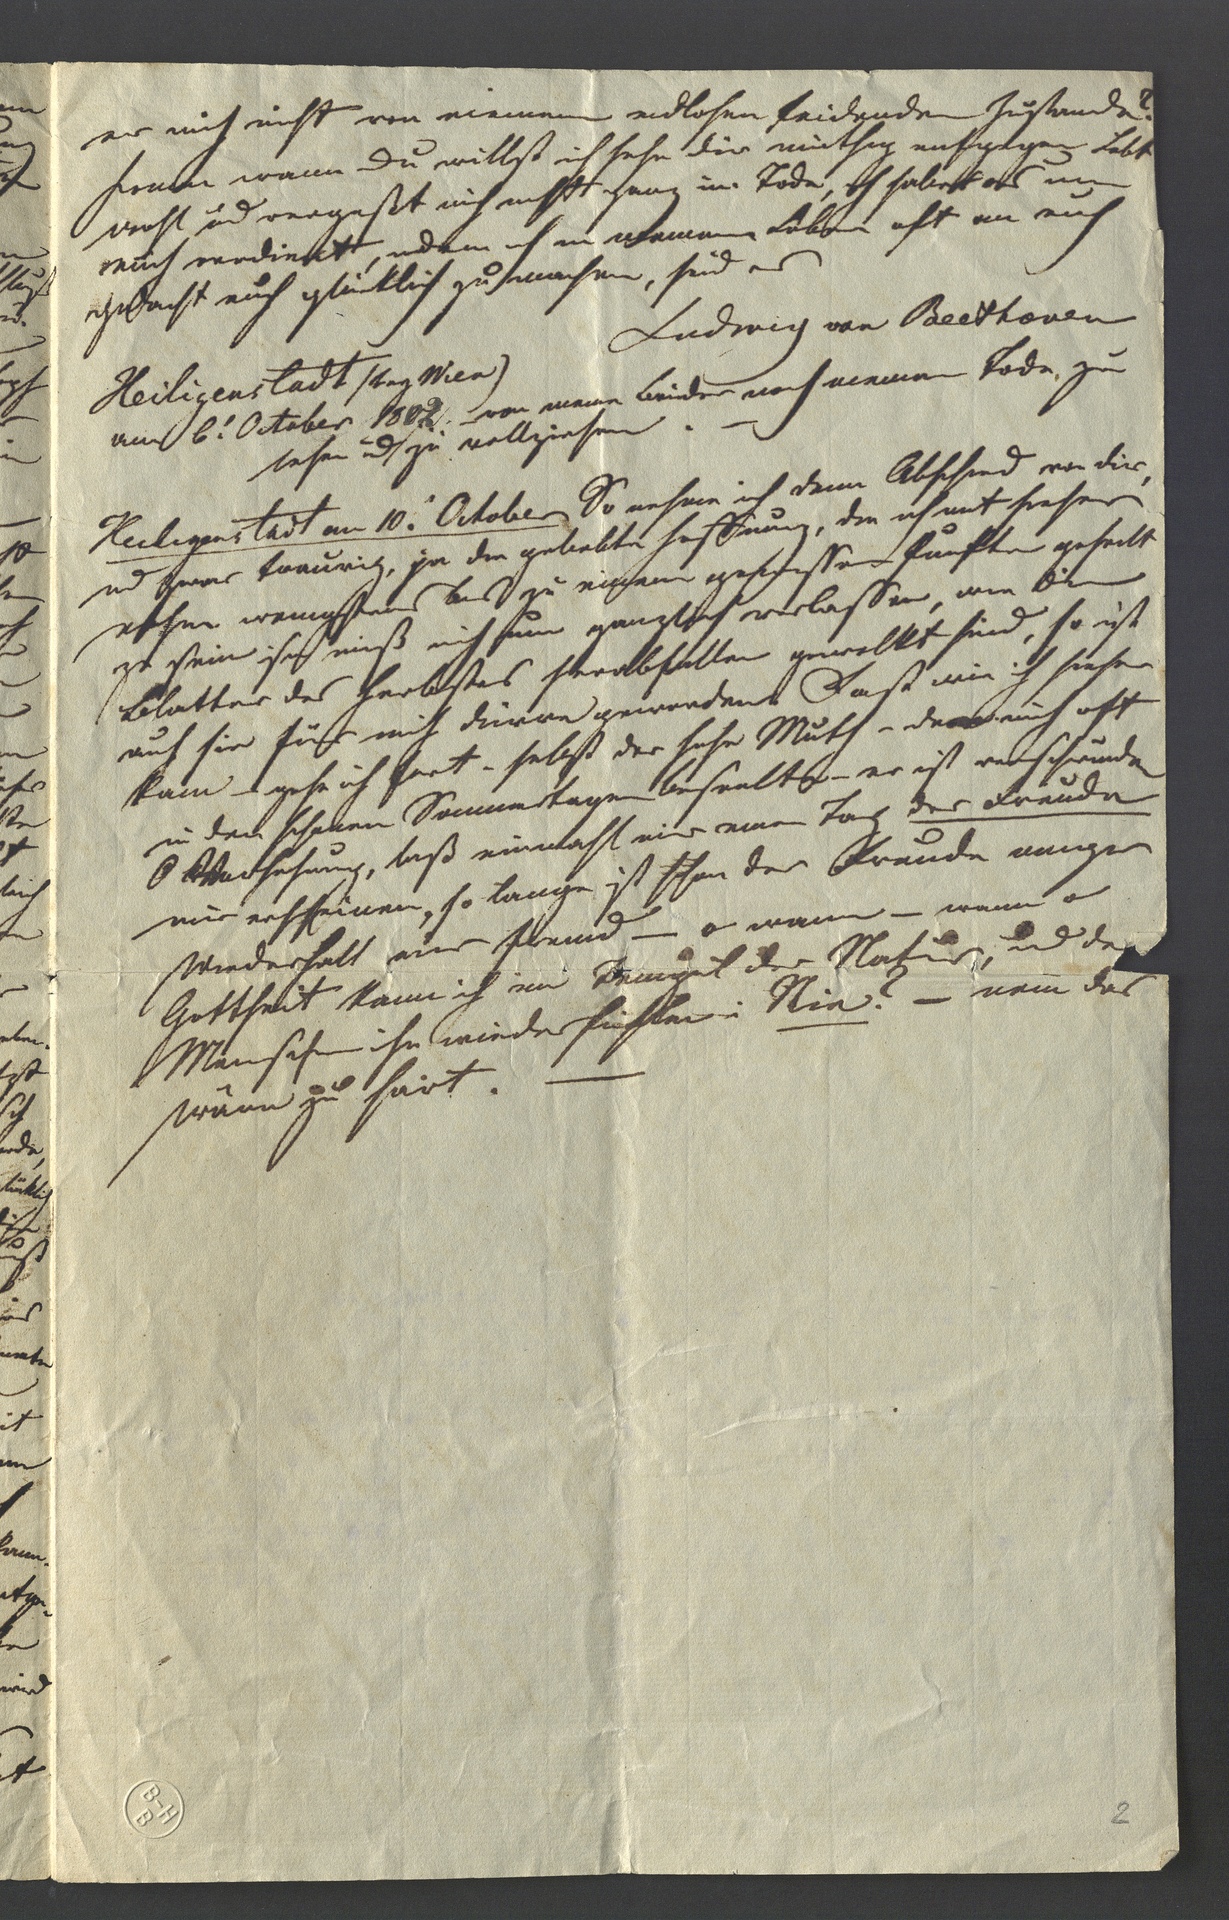 er mich nicht von einem endlosen leidenden Zustande?
komm wann Du willst ich gehe dir muthig entgegen Lebt
wohl ūd vergeßt mich nicht ganz im Tode, ich habe es um
euch verdient, indem ich in meinem Leben oft an euch
gedacht euch glücklich zu machen, seid es
Ludwig van Beethoven
Heiligenstadt (bey Wien)
am 6. October 1802. von meine Brüder nach meinem Tode zu
lesen ūd zu vollziehen . —
Heiligenstadt am 10. October So nehme ich denn Abschied von dir,
ud zwar traurig, ja die geliebte Hoffnung, die ich mit hieher
nahm wenigstens bis zu einem gewissen Punkte geheilt
zu sein sie muß mich nun gänzlich verlassen, wie die
Blätter des Herbstes herabfallen gewelkt sind, so ist
auch sie für mich dürre geworden. Fast wie ich hieher
kam – gehe ich fort – selbst der hohe Muth – der mich oft
in den schönen Sommertagen beseelte – er ist verschwunden
O Vorsehung, laß einmahl mir einen Tag der Freude
mir erscheinen, so lange ist schon der Freude inniger
Wiederhall mir fremd — o wann — wann o
Gottheit kann ich im Tempel der Natur, ūd der
Menschen ihn wieder fühlen: Nie? — nein das
wäre zu hart . —
B-H
B
2